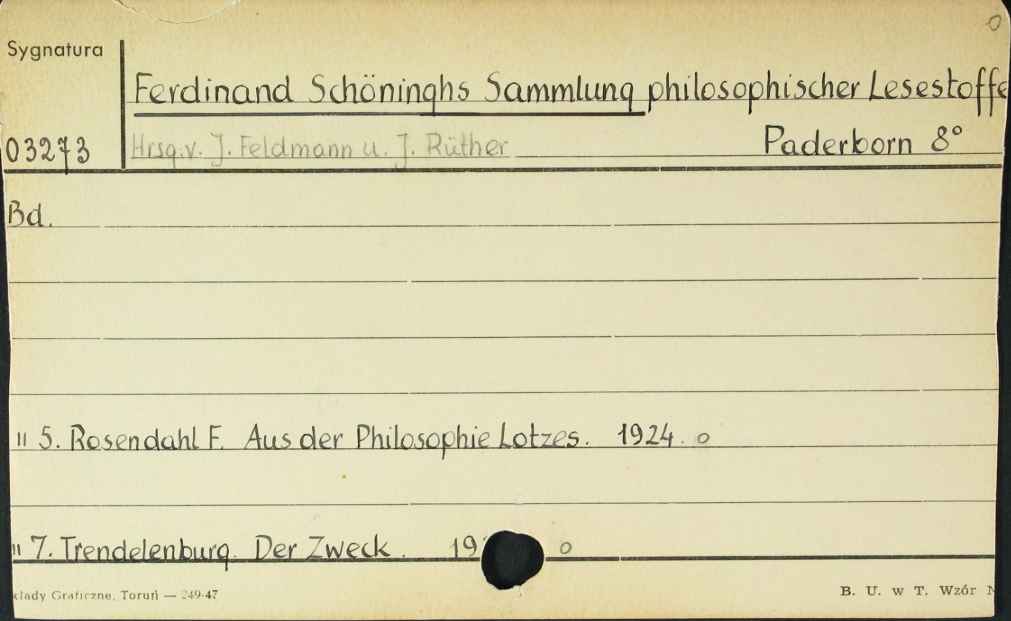 Sygnatura
Ferdinand Schöninghs Sammlung philosophischer Lesestoffe
03273 Hrsg.v. J. Feldmann u. J. Rüther Paderborn 8°
Bd.
" 5. Rosendahl F. Aus der Philosophie Lotzes. 1924. o
" 7. Trendelenburg. Der Zweck. 19 o
kłady Graficzne, Toruń — 249-47 B. U. w T. Wzór N